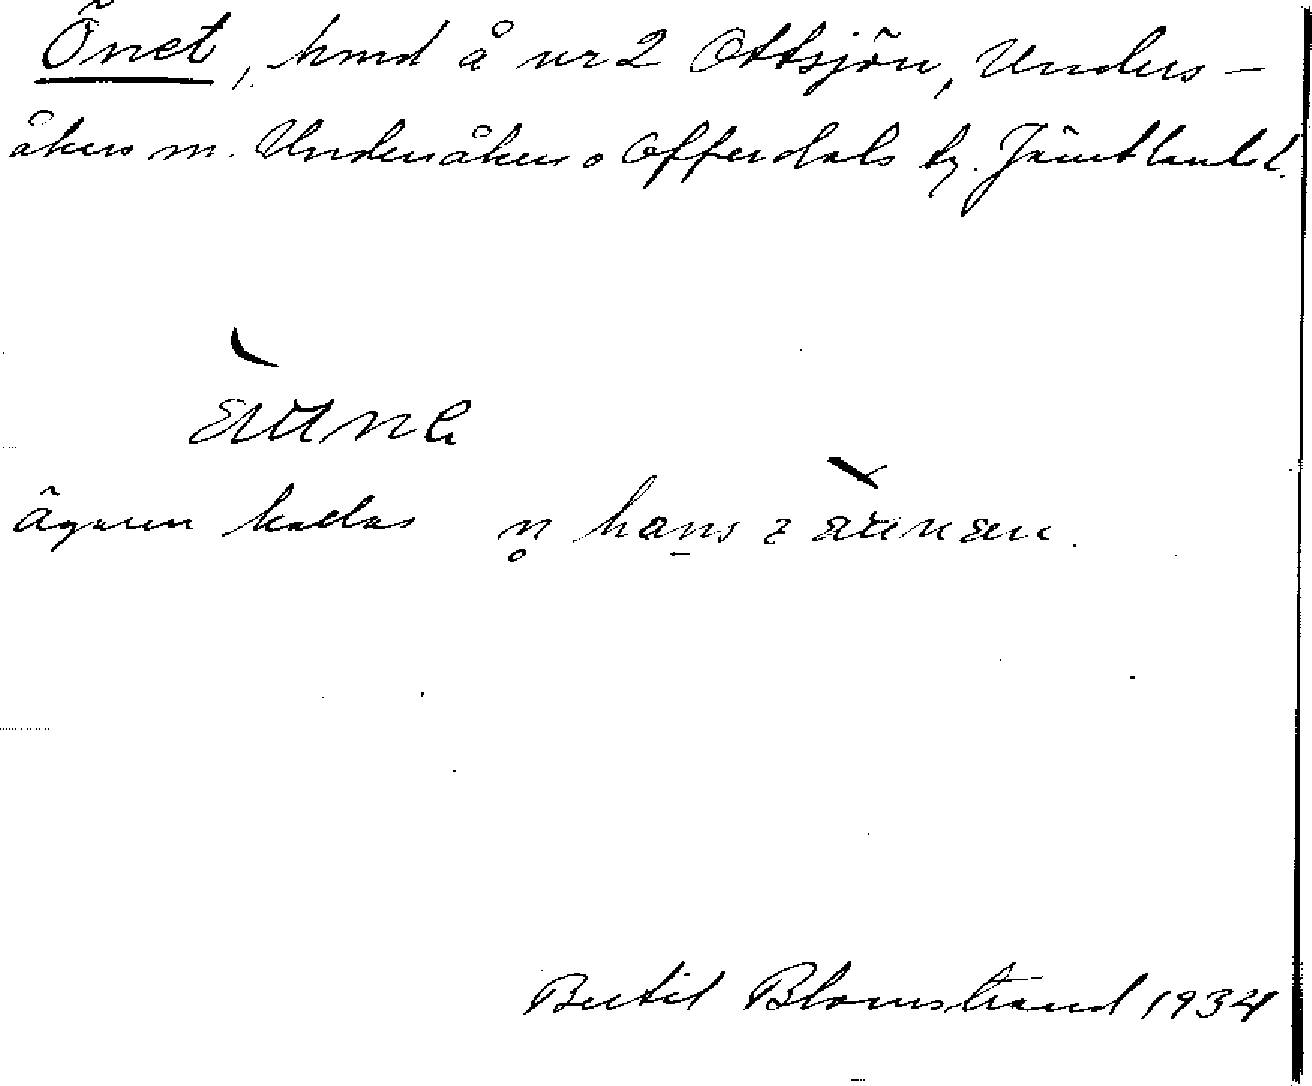 Önet, hmd å nr 2 Ottsjön, Unders-
åkers sn. Undersåkers o Offerdals tg. Jämtlands l.
ägaren kallas
Bertil Blomstrand 1934